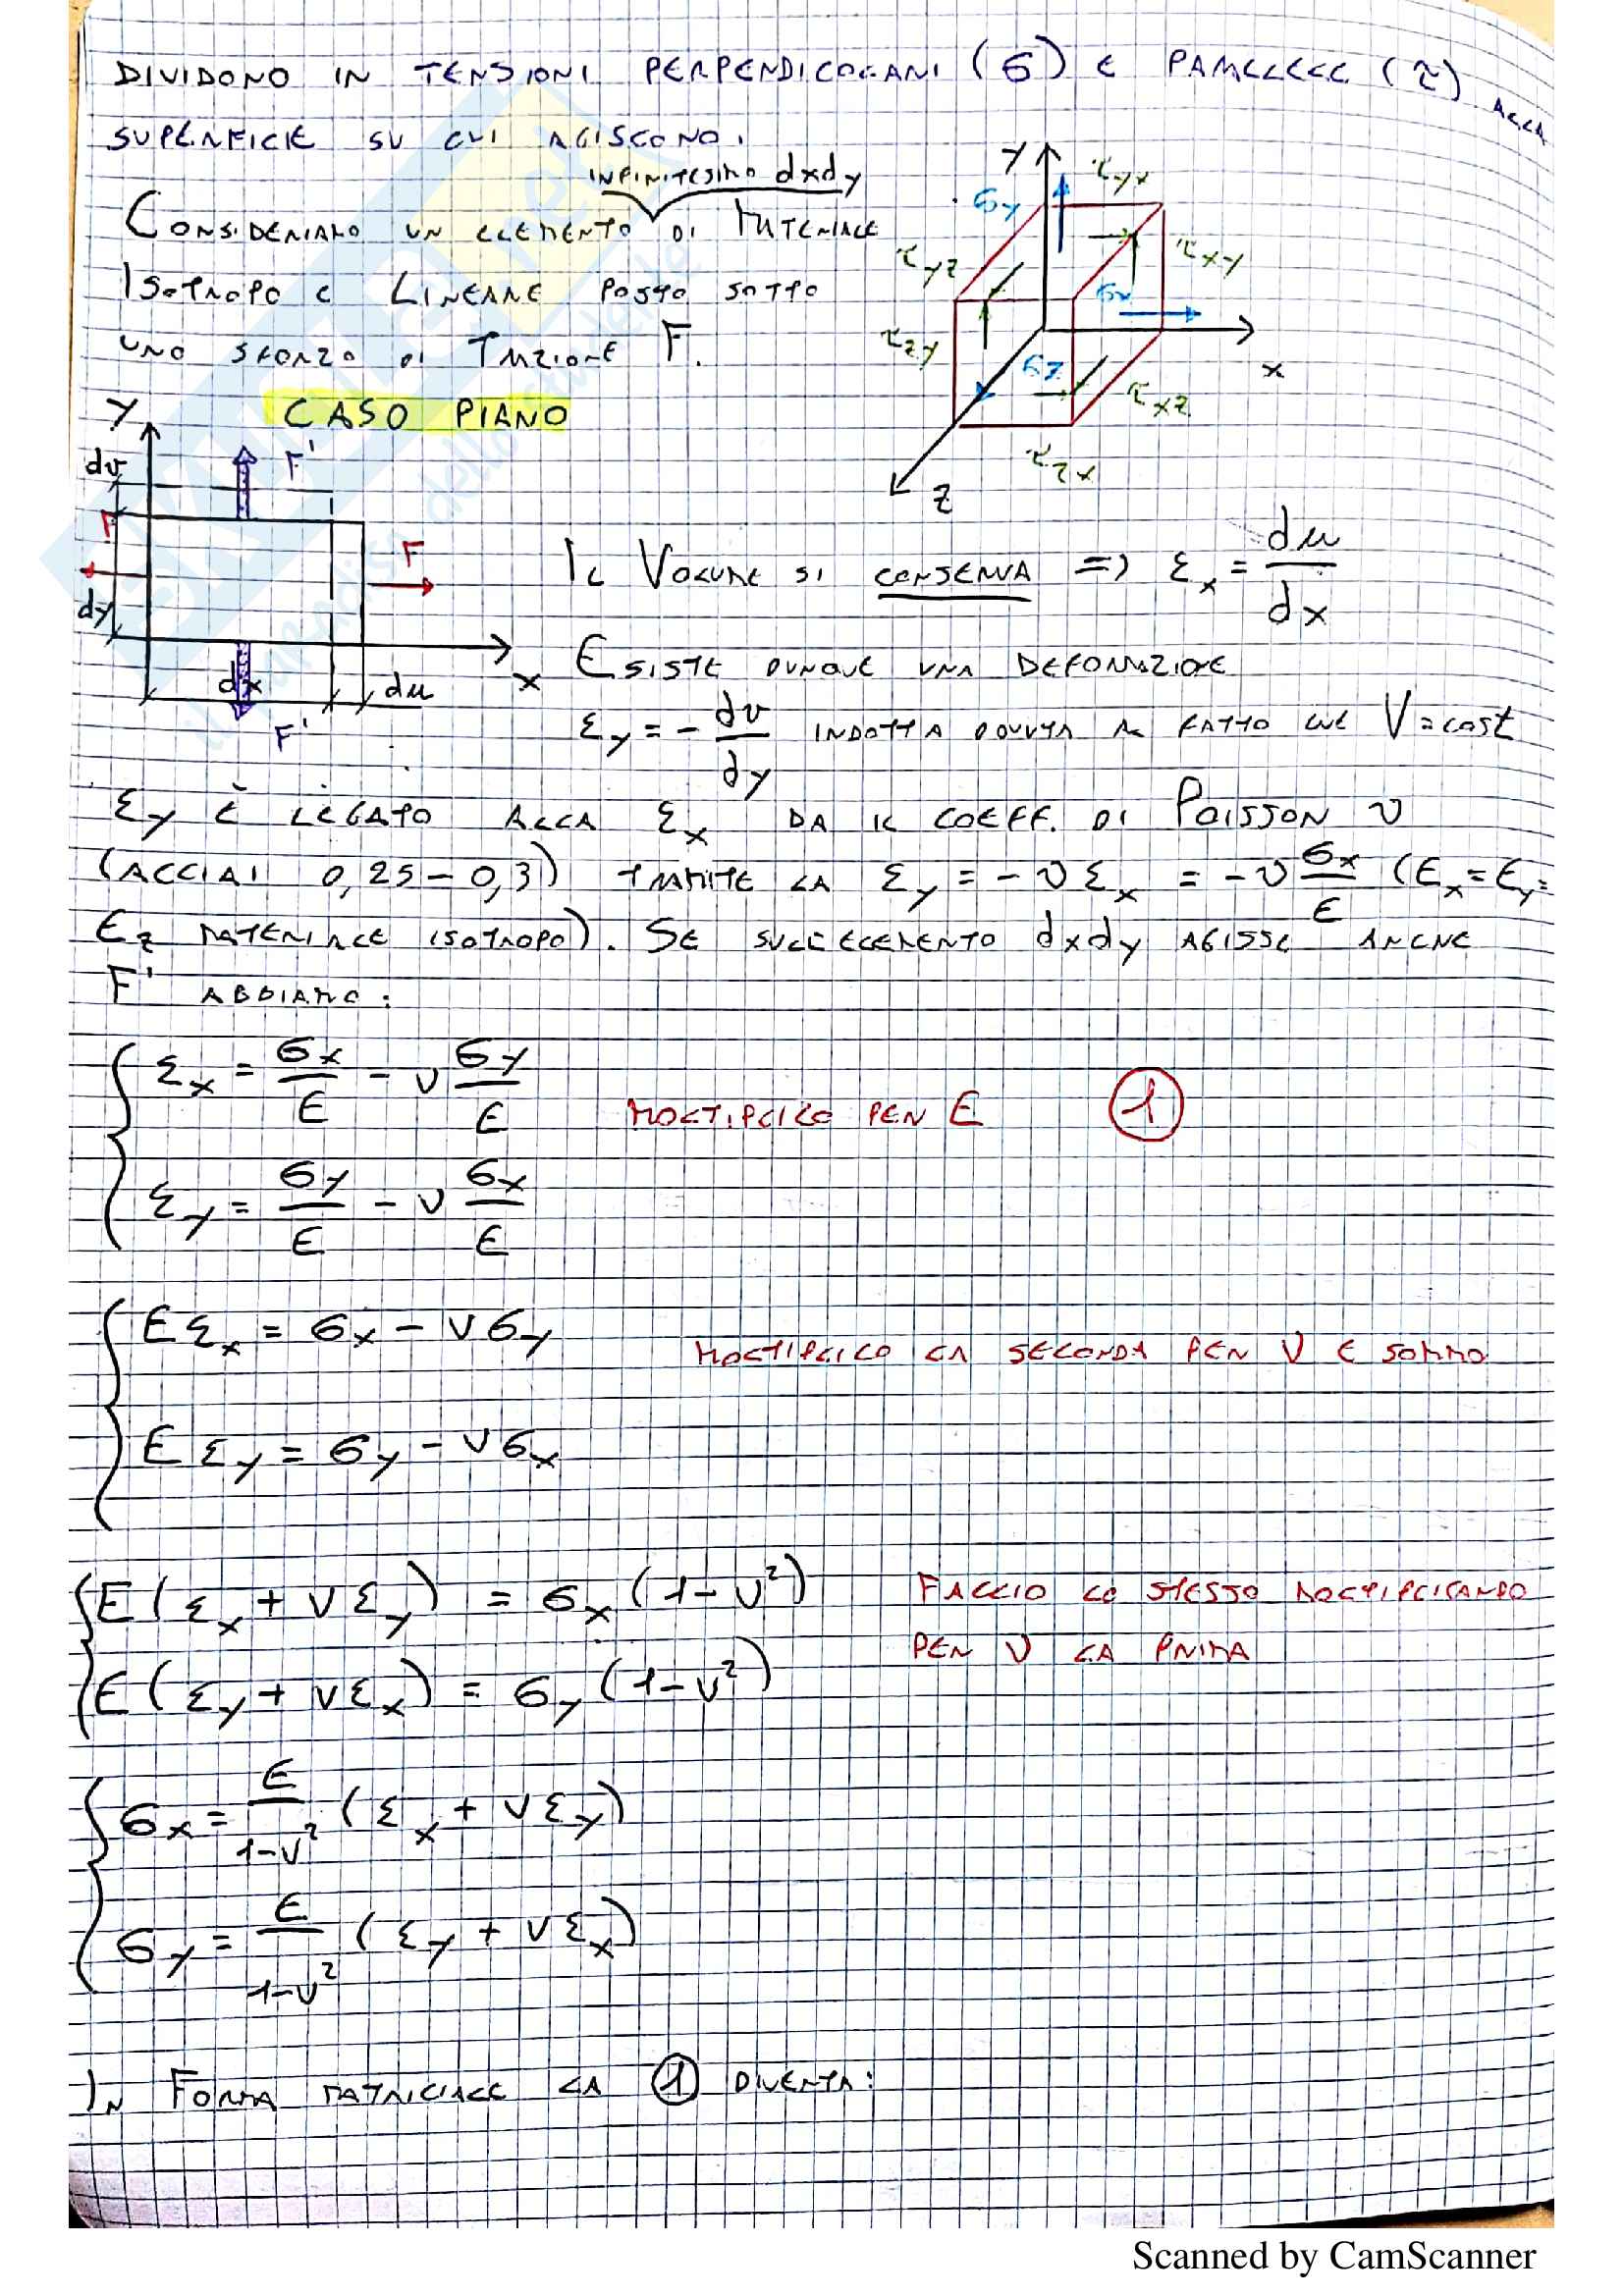 DIVIDONO IN TENSIONI PERPENDICOLARI (σ) E PARALLELE (τ) ALLA
SUPERFICIE SU CUI AGISCONO.
INFINITESIMO dxdy
CONSIDERIAMO UN ELEMENTO DI MATERIALE
ISOTROPO E LINEARE POSTO SOTTO
UNO SFORZO DI TRAZIONE F.
y
τyx
σy
τyz
τxy
σx
τzy
σz
x
τxz
τzx
z
CASO PIANO
y
dv
F'
F
F
dy
dx
du
x
F'
IL VOLUME SI CONSERVA => εx = du/dx
ESISTE DUNQUE UNA DEFORMAZIONE
εy = - dv/dy INDOTTA DOVUTA AL FATTO CHE V = cost
εy È LEGATO ALLA εx DA IL COEFF. DI POISSON ν
(ACCIAI 0,25 - 0,3) TRAMITE LA εy = - ν εx = - ν σx/E (Ex = Ey =
Ez MATERIALE ISOTROPO). SE SULL'ELEMENTO dxdy AGISSE ANCHE
F' ABBIAMO:
εx = σx/E - ν σy/E
MOLTIPLICO PER E 1
εy = σy/E - ν σx/E
E εx = σx - ν σy
MOLTIPLICO LA SECONDA PER ν E SOMMO
E εy = σy - ν σx
E ( εx + ν εy ) = σx ( 1 - ν² ) FACCIO LO STESSO MOLTIPLICANDO
PER ν LA PRIMA
E ( εy + ν εx ) = σy ( 1 - ν² )
σx = E/1-ν² ( εx + ν εy )
σy = E/1-ν² ( εy + ν εx )
IN FORMA MATRICIALE LA 1 DIVENTA:
Scanned by CamScanner